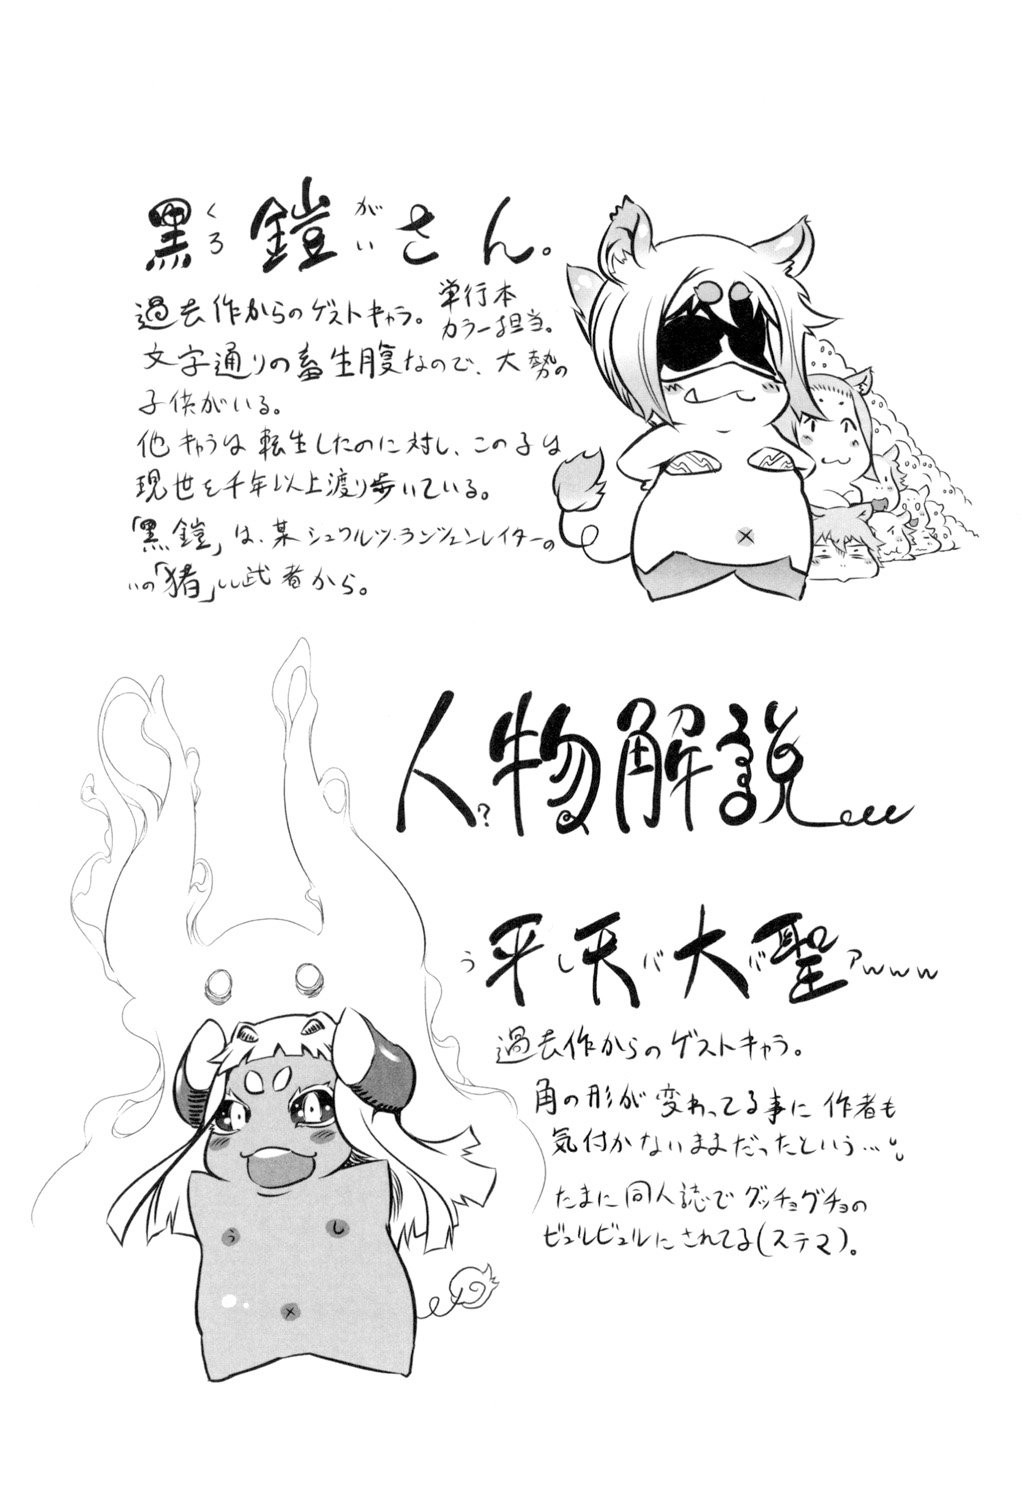 黒鎧さん。
くろ がい
過去作からのゲストキャラ。
単行本
カラー担当。
文字通りの畜生腹なので、大勢の
子供がいる。
他キャラは転生したのに対し、この子は
現世を千年以上渡り歩いている。
「黒鎧」は、某シュワルツ・ランツェンレイターの
いの「猪」い武者から。
人?物解説
平天大聖
うしババアwww
過去作からのゲストキャラ。
角の形が変わってる事に作者も
気付かないままだったという…。
たまに同人誌でグッチョグチョの
ビュルビュルにされてる(ステマ)。
う
し